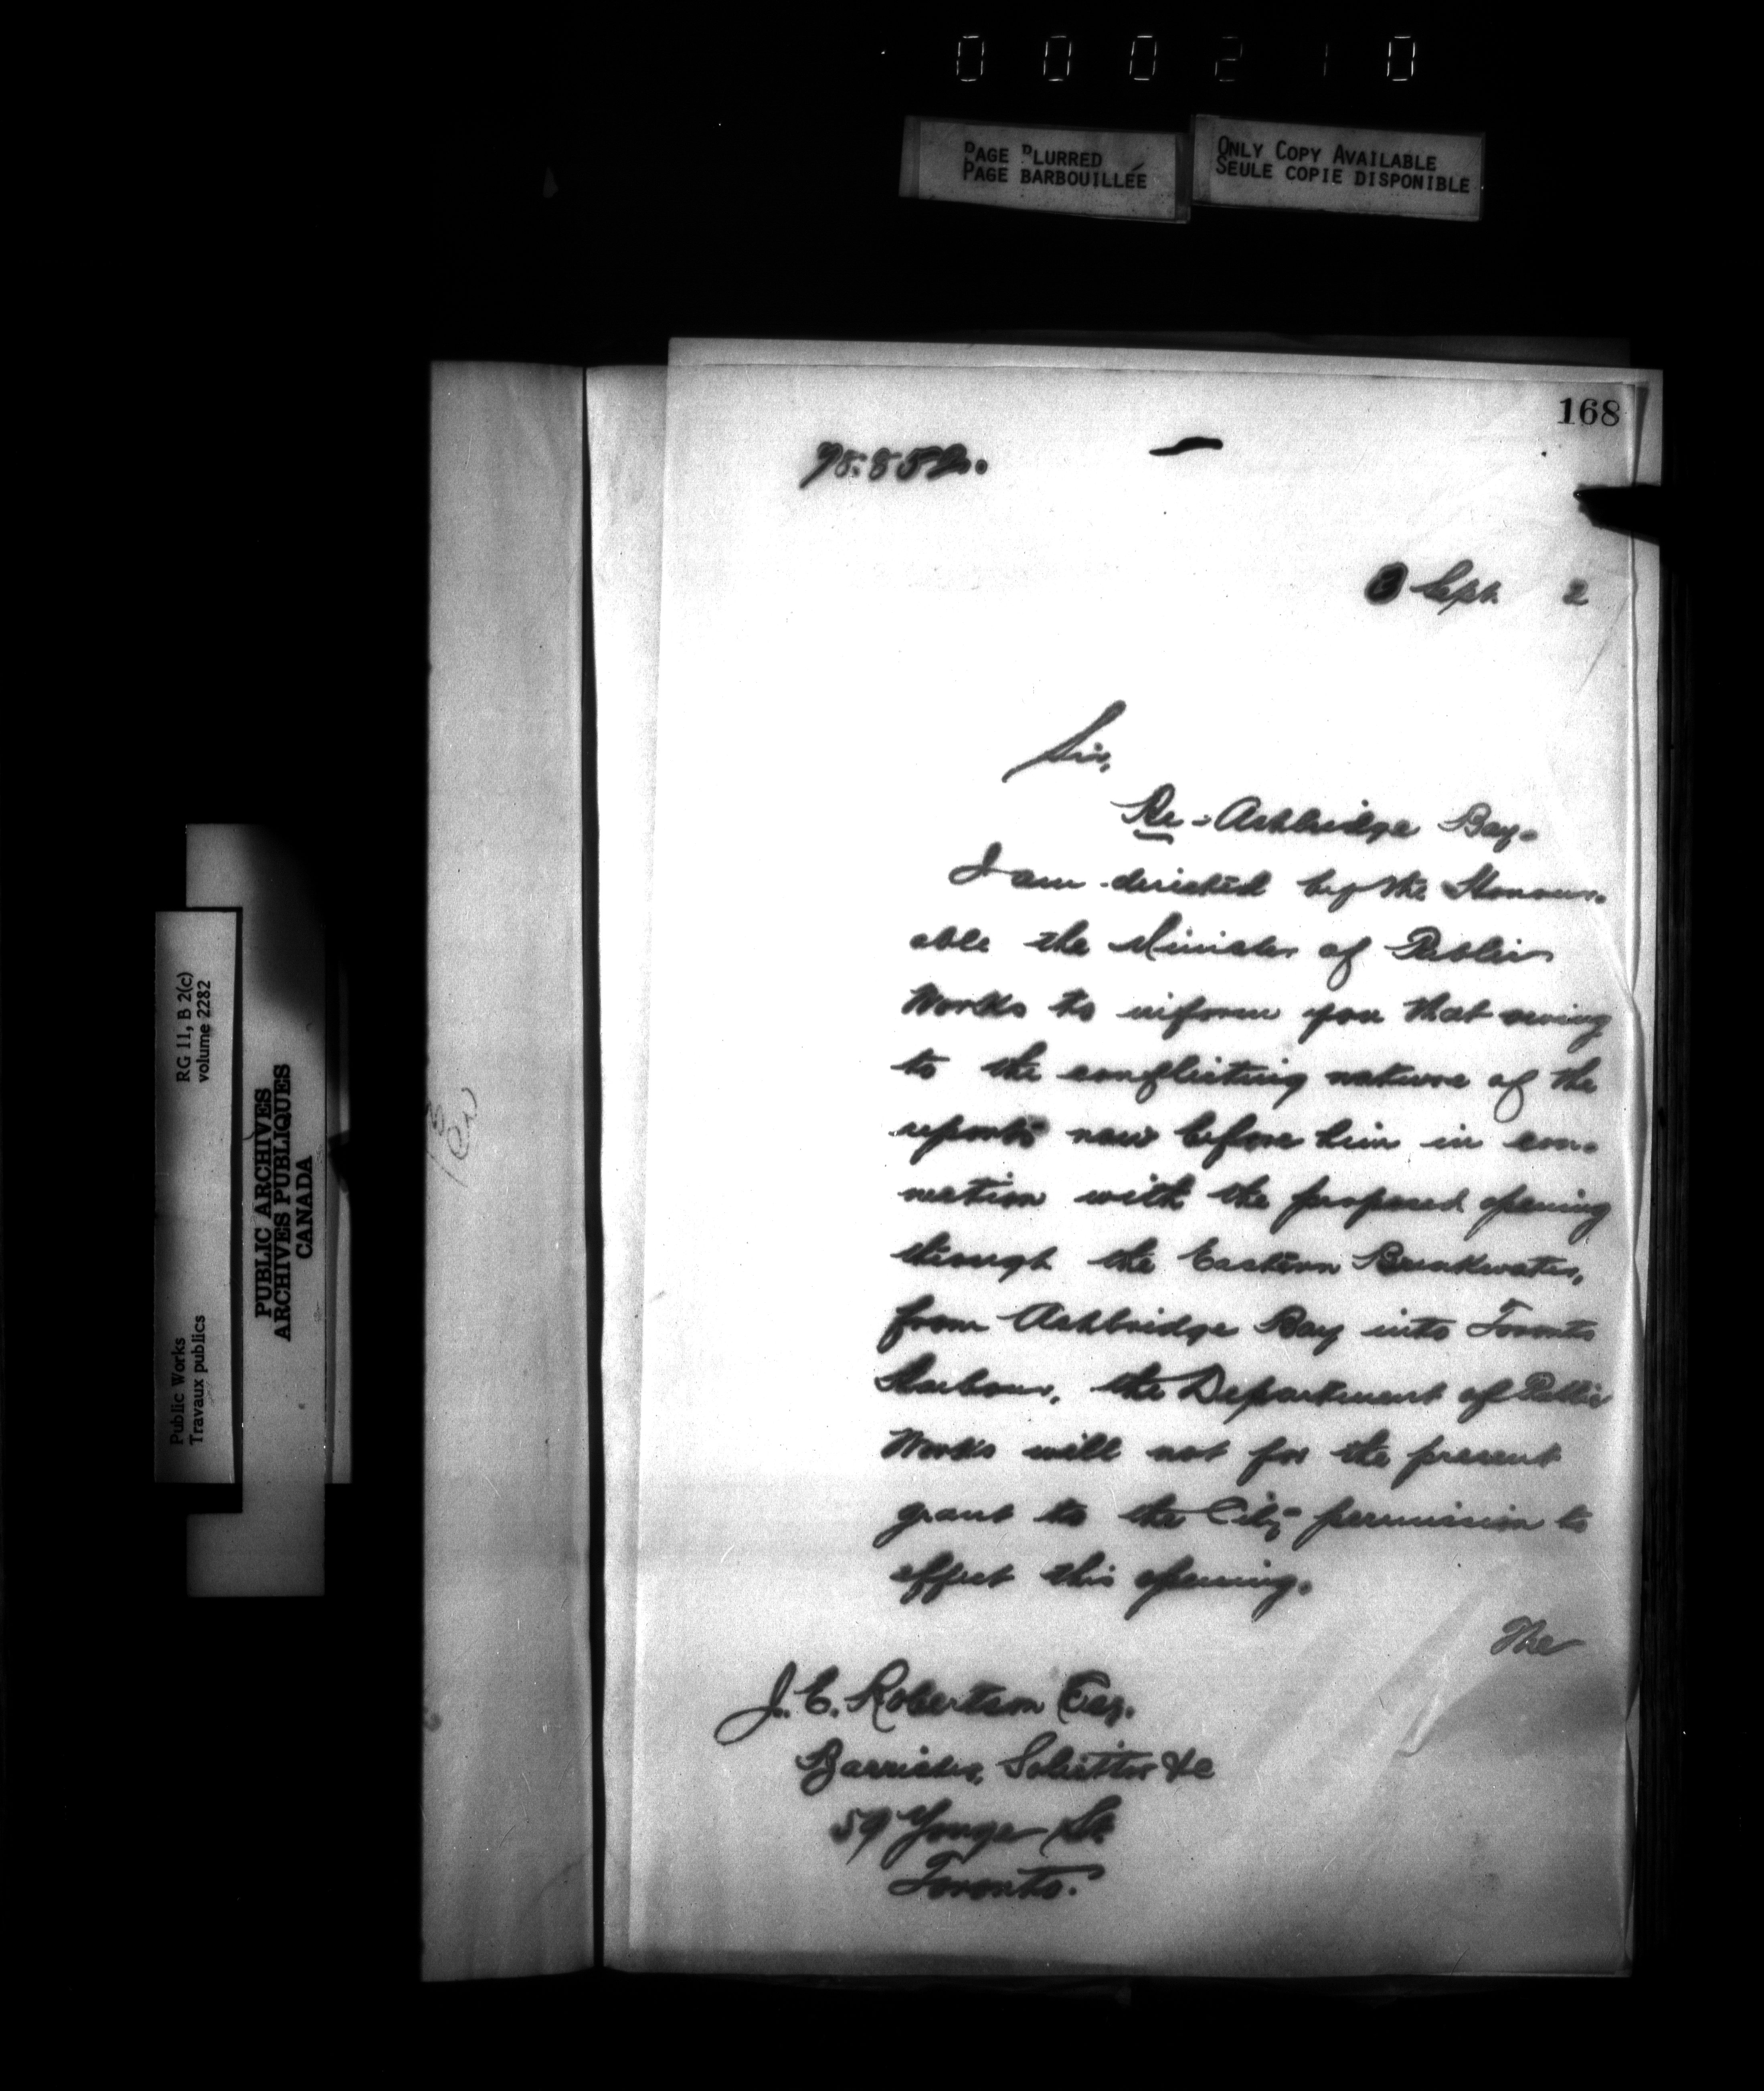 000210
PAGE BLURRED
PAGE BARBOUILLÉE
ONLY COPY AVAILABLE
SEULE COPIE DISPONIBLE
168
3 Sept. 2
Sir,
Re - Ashbridge Bay.
I am directed by the Honour-
able the Minister of Public
Works to inform you that owing
to the conflicting nature of the
reports now before him in con-
nection with the proposed opening
through the Eastern Breakwater,
from Ashbridge Bay into Toronto
Harbour, the Department of Public
Works will not for the present
grant to the City permission to
effect this opening.
The
J. E. Robertson Esq.
Barrister, Solicitor &c
59 Yonge St.
Toronto.
RG 11, B 2(c)
volume 2282
Public Works
Travaux publics
PUBLIC ARCHIVES
ARCHIVES PUBLIQUES
CANADA